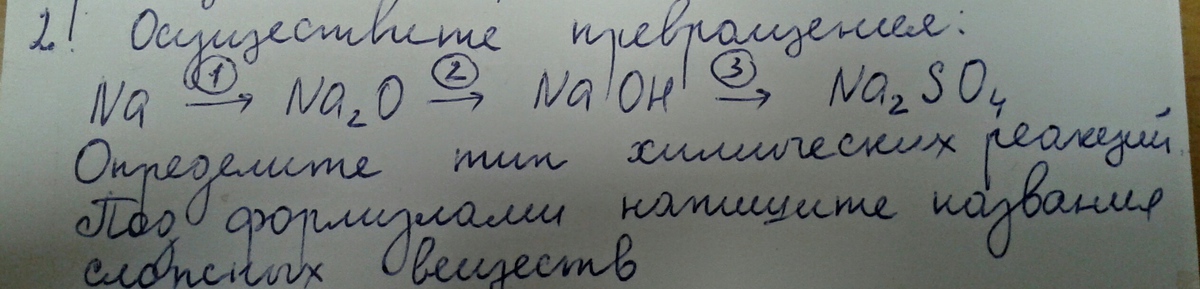 2! Осуществите превращения:
Na ①→ Na₂O ②→ NaOH ③→ Na₂SO₄
Определите тип химических реакций.
Под формулами напишите названия
сложных веществ